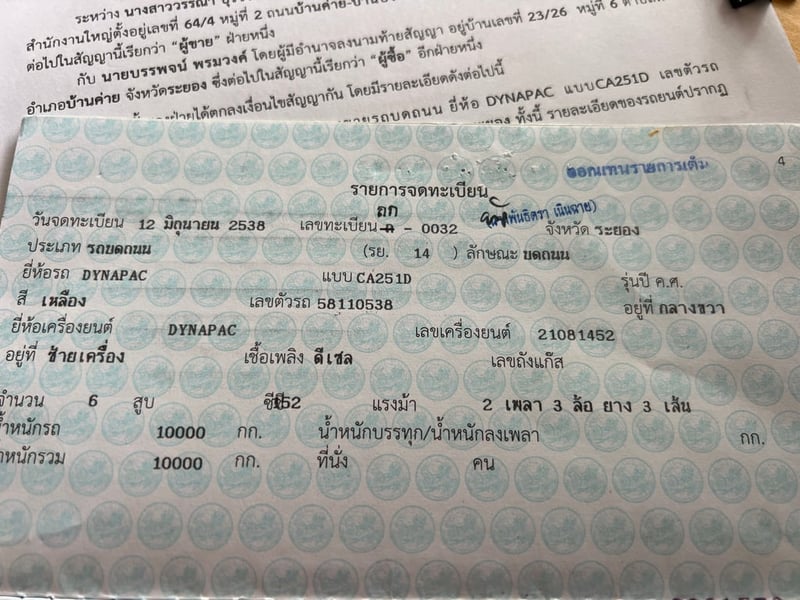 ระหว่าง นางสาววรรณา
สำนักงานใหญ่ตั้งอยู่เลขที่ 64/4 หมู่ที่ 2 ถนนบ้านค่าย-
ต่อไปในสัญญานี้เรียกว่า “ผู้ขาย” ฝ่ายหนึ่ง
กับ นายบรรพจน์ พรมวงค์ โดยผู้มีอำนาจลงนามท้ายสัญญา อยู่บ้านเลขที่ 23/26 หมู่ที่ 6
อำเภอบ้านค่าย จังหวัดระยอง ซึ่งต่อไปในสัญญานี้เรียกว่า “ผู้ซื้อ” อีกฝ่ายหนึ่ง
ได้ตกลงเงื่อนไขสัญญากัน โดยมีรายละเอียดดังต่อไปนี้
รถบดถนน ยี่ห้อ DYNAPAC แบบCA251D เลขตัวรถ
ทั้งนี้ รายละเอียดของรถยนต์ปรากฏ
4
รายการจดทะเบียน
วันจดทะเบียน 12 มิถุนายน 2538 เลขทะเบียน ตก - 0032 จังหวัด ระยอง
ประเภท รถบดถนน (รย. 14 ) ลักษณะ บดถนน
ยี่ห้อรถ DYNAPAC แบบ CA251D รุ่นปี ค.ศ.
สี เหลือง เลขตัวรถ 58110538 อยู่ที่ กลางขวา
ยี่ห้อเครื่องยนต์ DYNAPAC เลขเครื่องยนต์ 21081452
อยู่ที่ ซ้ายเครื่อง เชื้อเพลิง ดีเซล เลขถังแก๊ส
จำนวน 6 สูบ ซีซี 152 แรงม้า 2 เพลา 3 ล้อ ยาง 3 เส้น
น้ำหนักรถ 10000 กก. น้ำหนักบรรทุก/น้ำหนักลงเพลา กก.
น้ำหนักรวม 10000 กก. ที่นั่ง คน